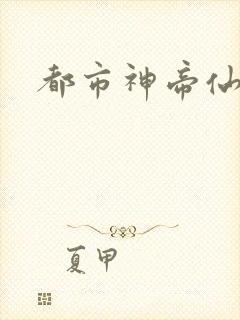 都市神帝仙
夏甲